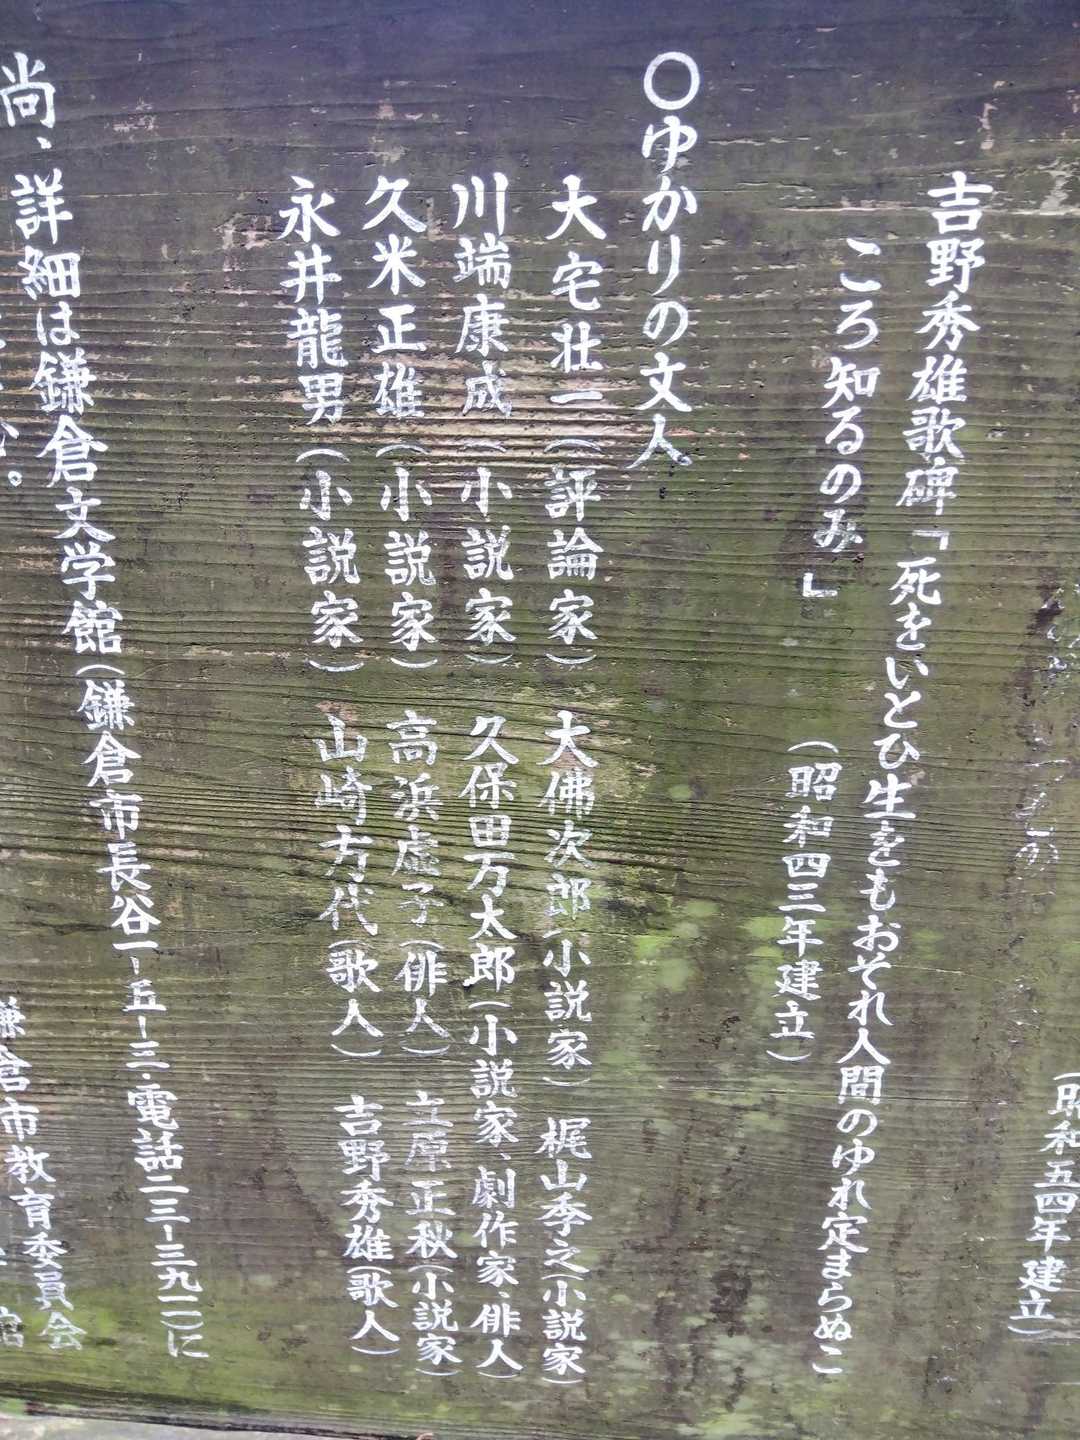 (昭和五四年建立)
吉野秀雄歌碑「死をいとひ生をもおそれ人間のゆれ定まらぬこ
ころ知るのみ」
(昭和四三年建立)
○ゆかりの文人
大宅壮一(評論家) 大佛次郎(小説家) 梶山季之(小説家)
川端康成(小説家) 久保田万太郎(小説家、劇作家、俳人)
久米正雄(小説家) 高浜虚子(俳人) 立原正秋(小説家)
永井龍男(小説家) 山崎方代(歌人) 吉野秀雄(歌人)
尚、詳細は鎌倉文学館(鎌倉市長谷一-五-三・電話二三-三九一一)に
鎌倉市教育委員会
館